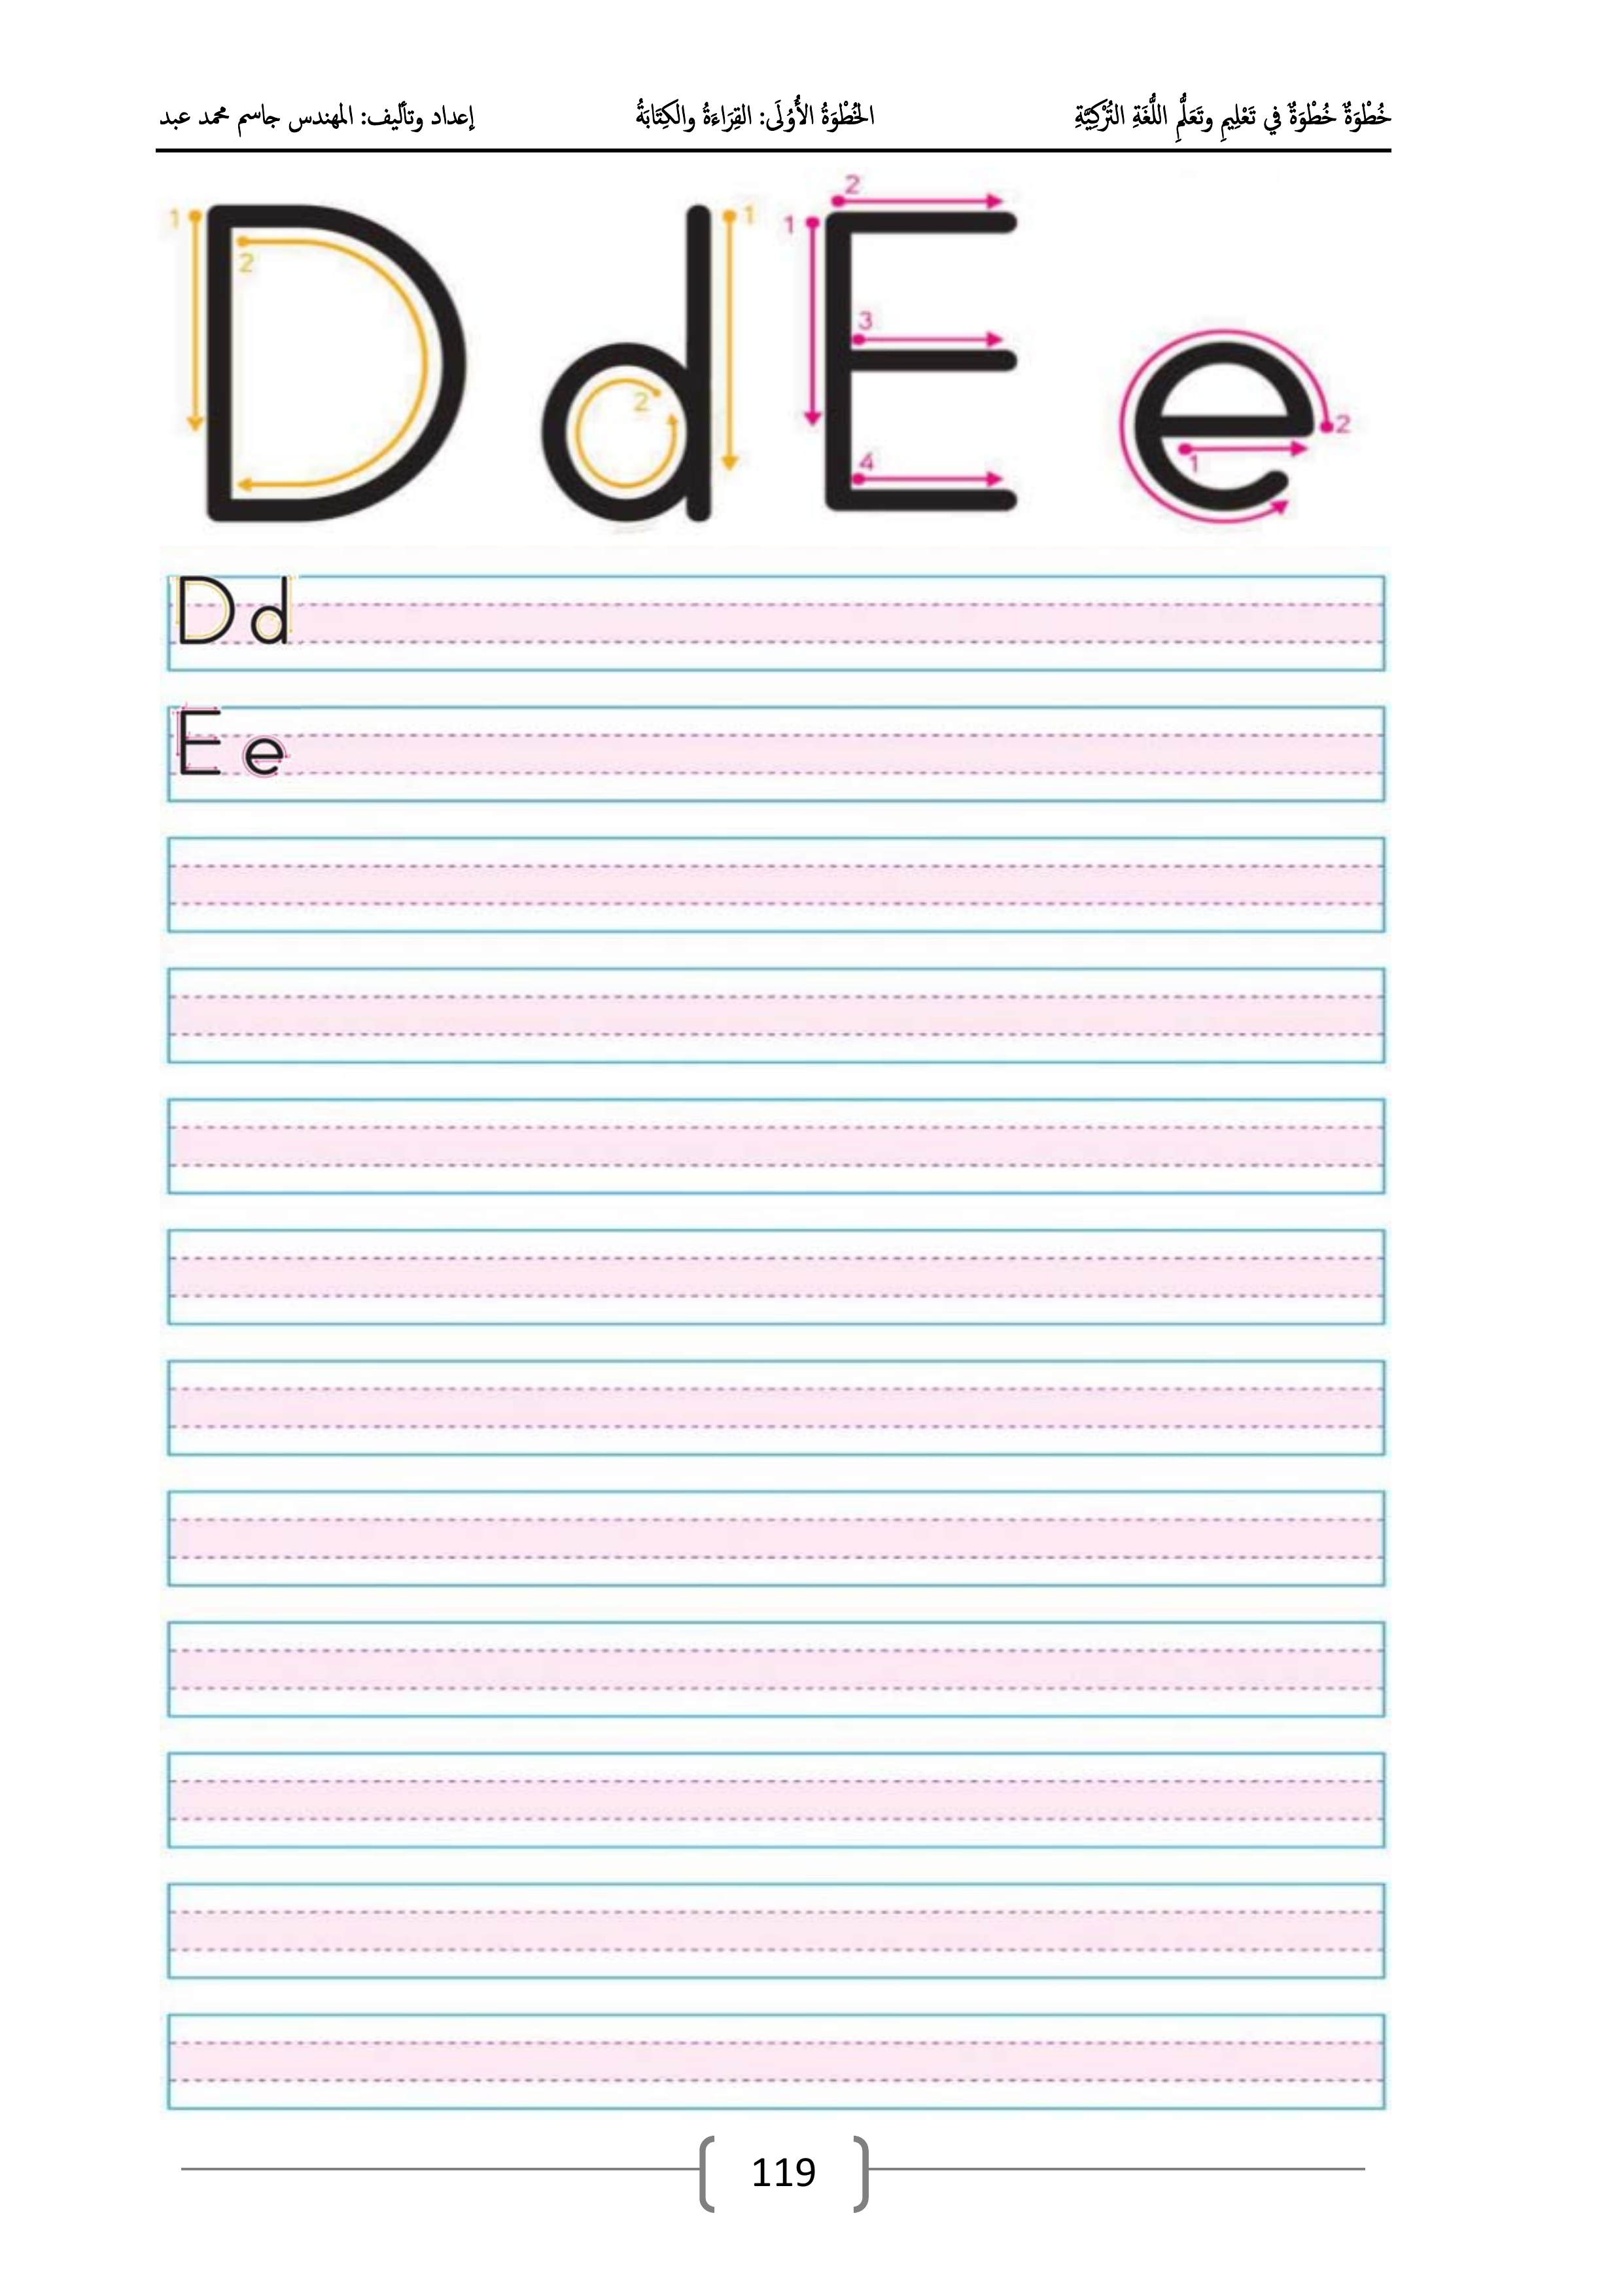 خُطْوَةٌ خُطْوَةٌ في تَعْلِيمِ وتَعَلُّمِ اللُّغَةِ التُرْكِيَّةِ الخُطْوَةُ الأُوْلَى: القِرَاءَةُ والكِتَابَةُ إعداد وتأليف: المهندس جاسم محمد عبد
D d E e
1 2 1 2 1 2 3 4 1 2
D d
E e
119